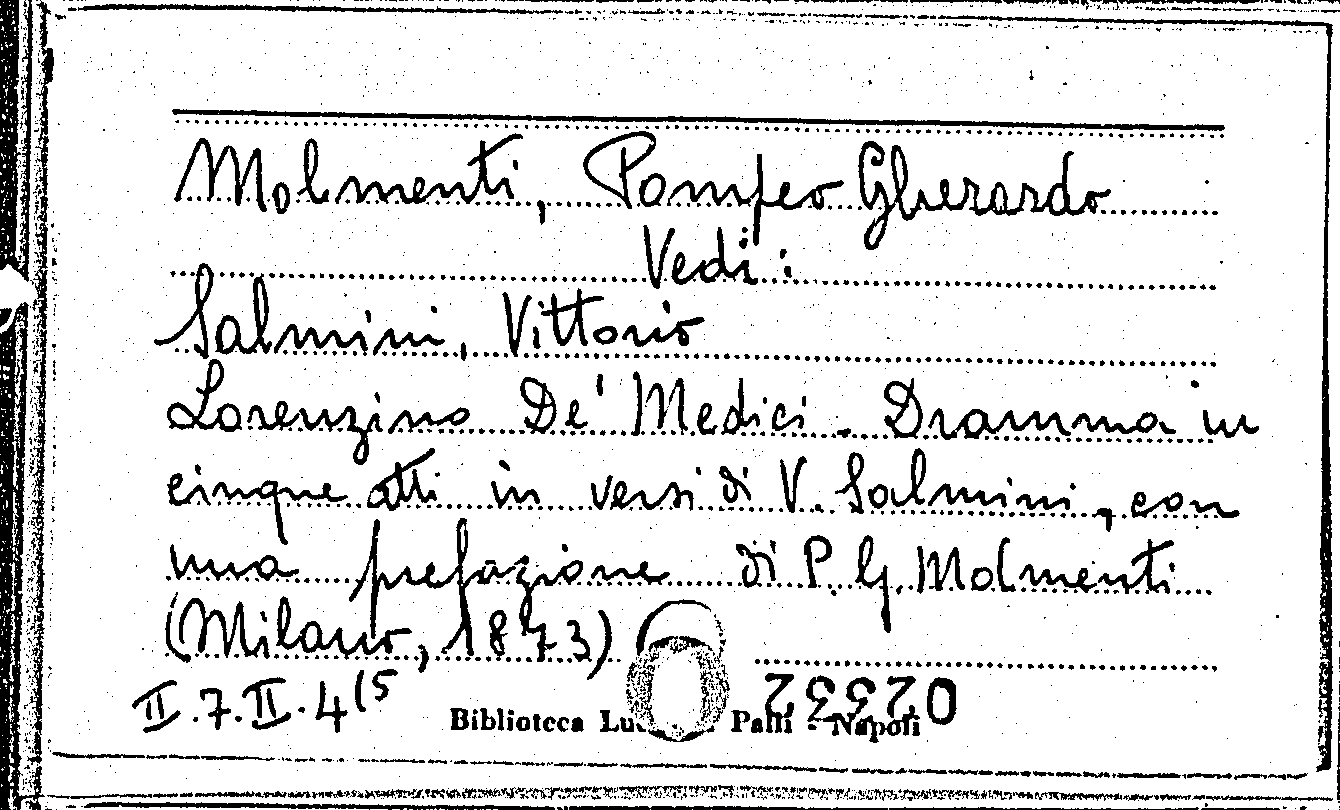 Molmenti, Pompeo Gherardo
Vedi:
Salmini, Vittorio
Lorenzino De' Medici. Dramma in
cinque atti in versi di V. Salmini, con
una prefazione di P. G. Molmenti
(Milano, 1873)
II.7.II.4(5
Biblioteca Palli - Napoli